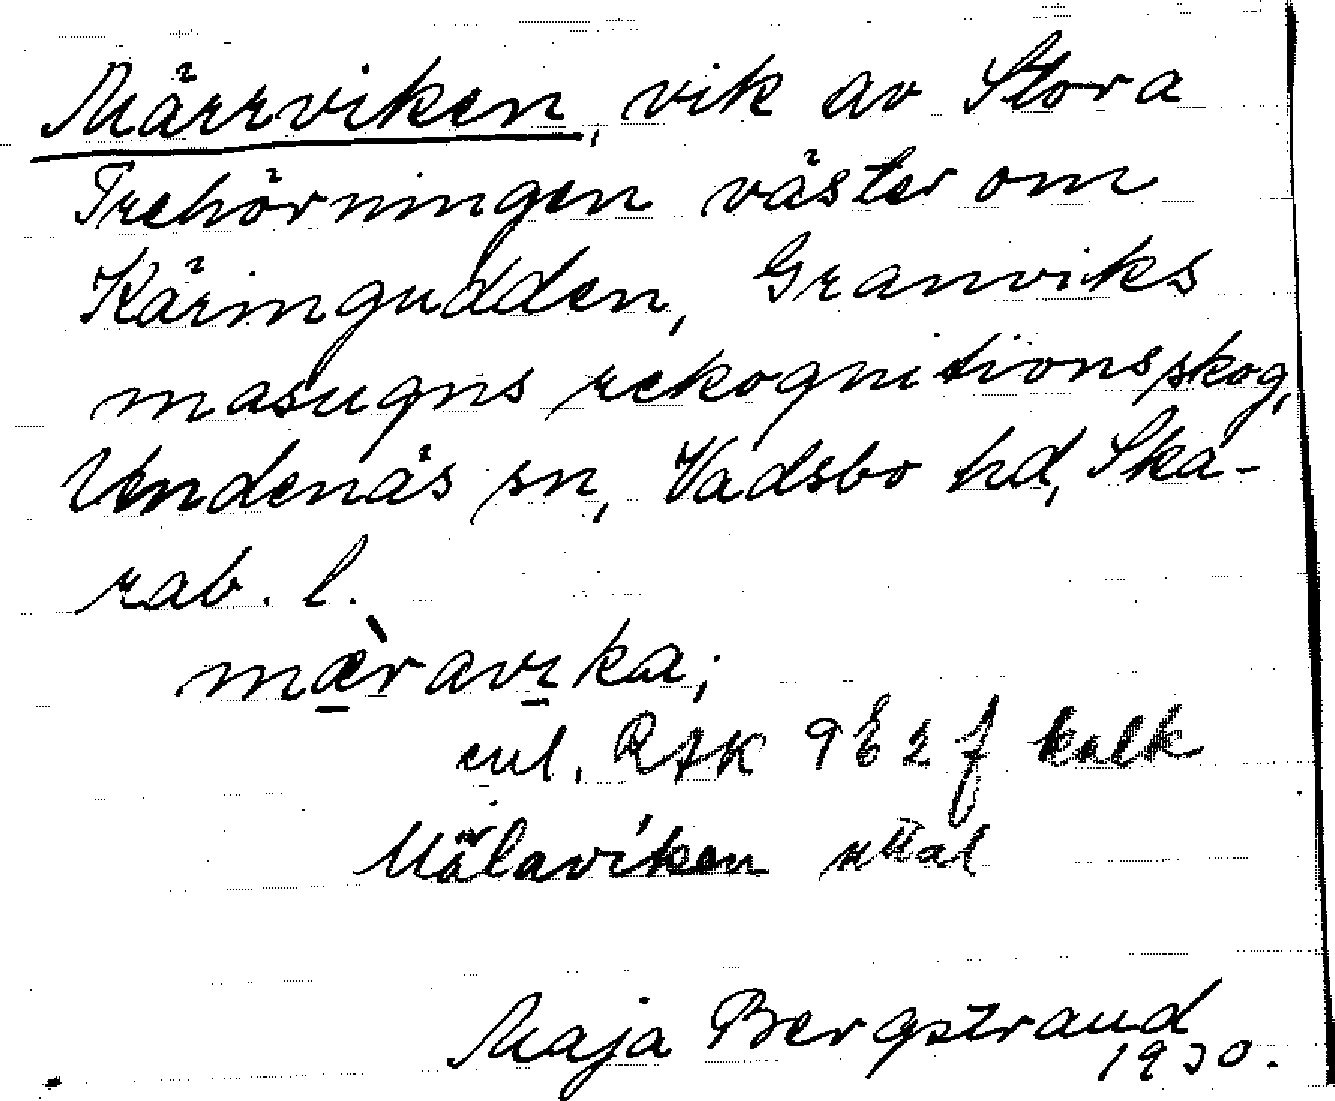 Märrviken, vik av Stora
Trehörningen väster om
Käringudden, Granviks
masugns rekognitionsskog,
Undenäs sn, Vadsbo hd, Ska-
rab. l.
mæ̀ravika;
enl. RAK 9E2f kalk
Mälaviken uttal
Maja Bergstrand
1930.